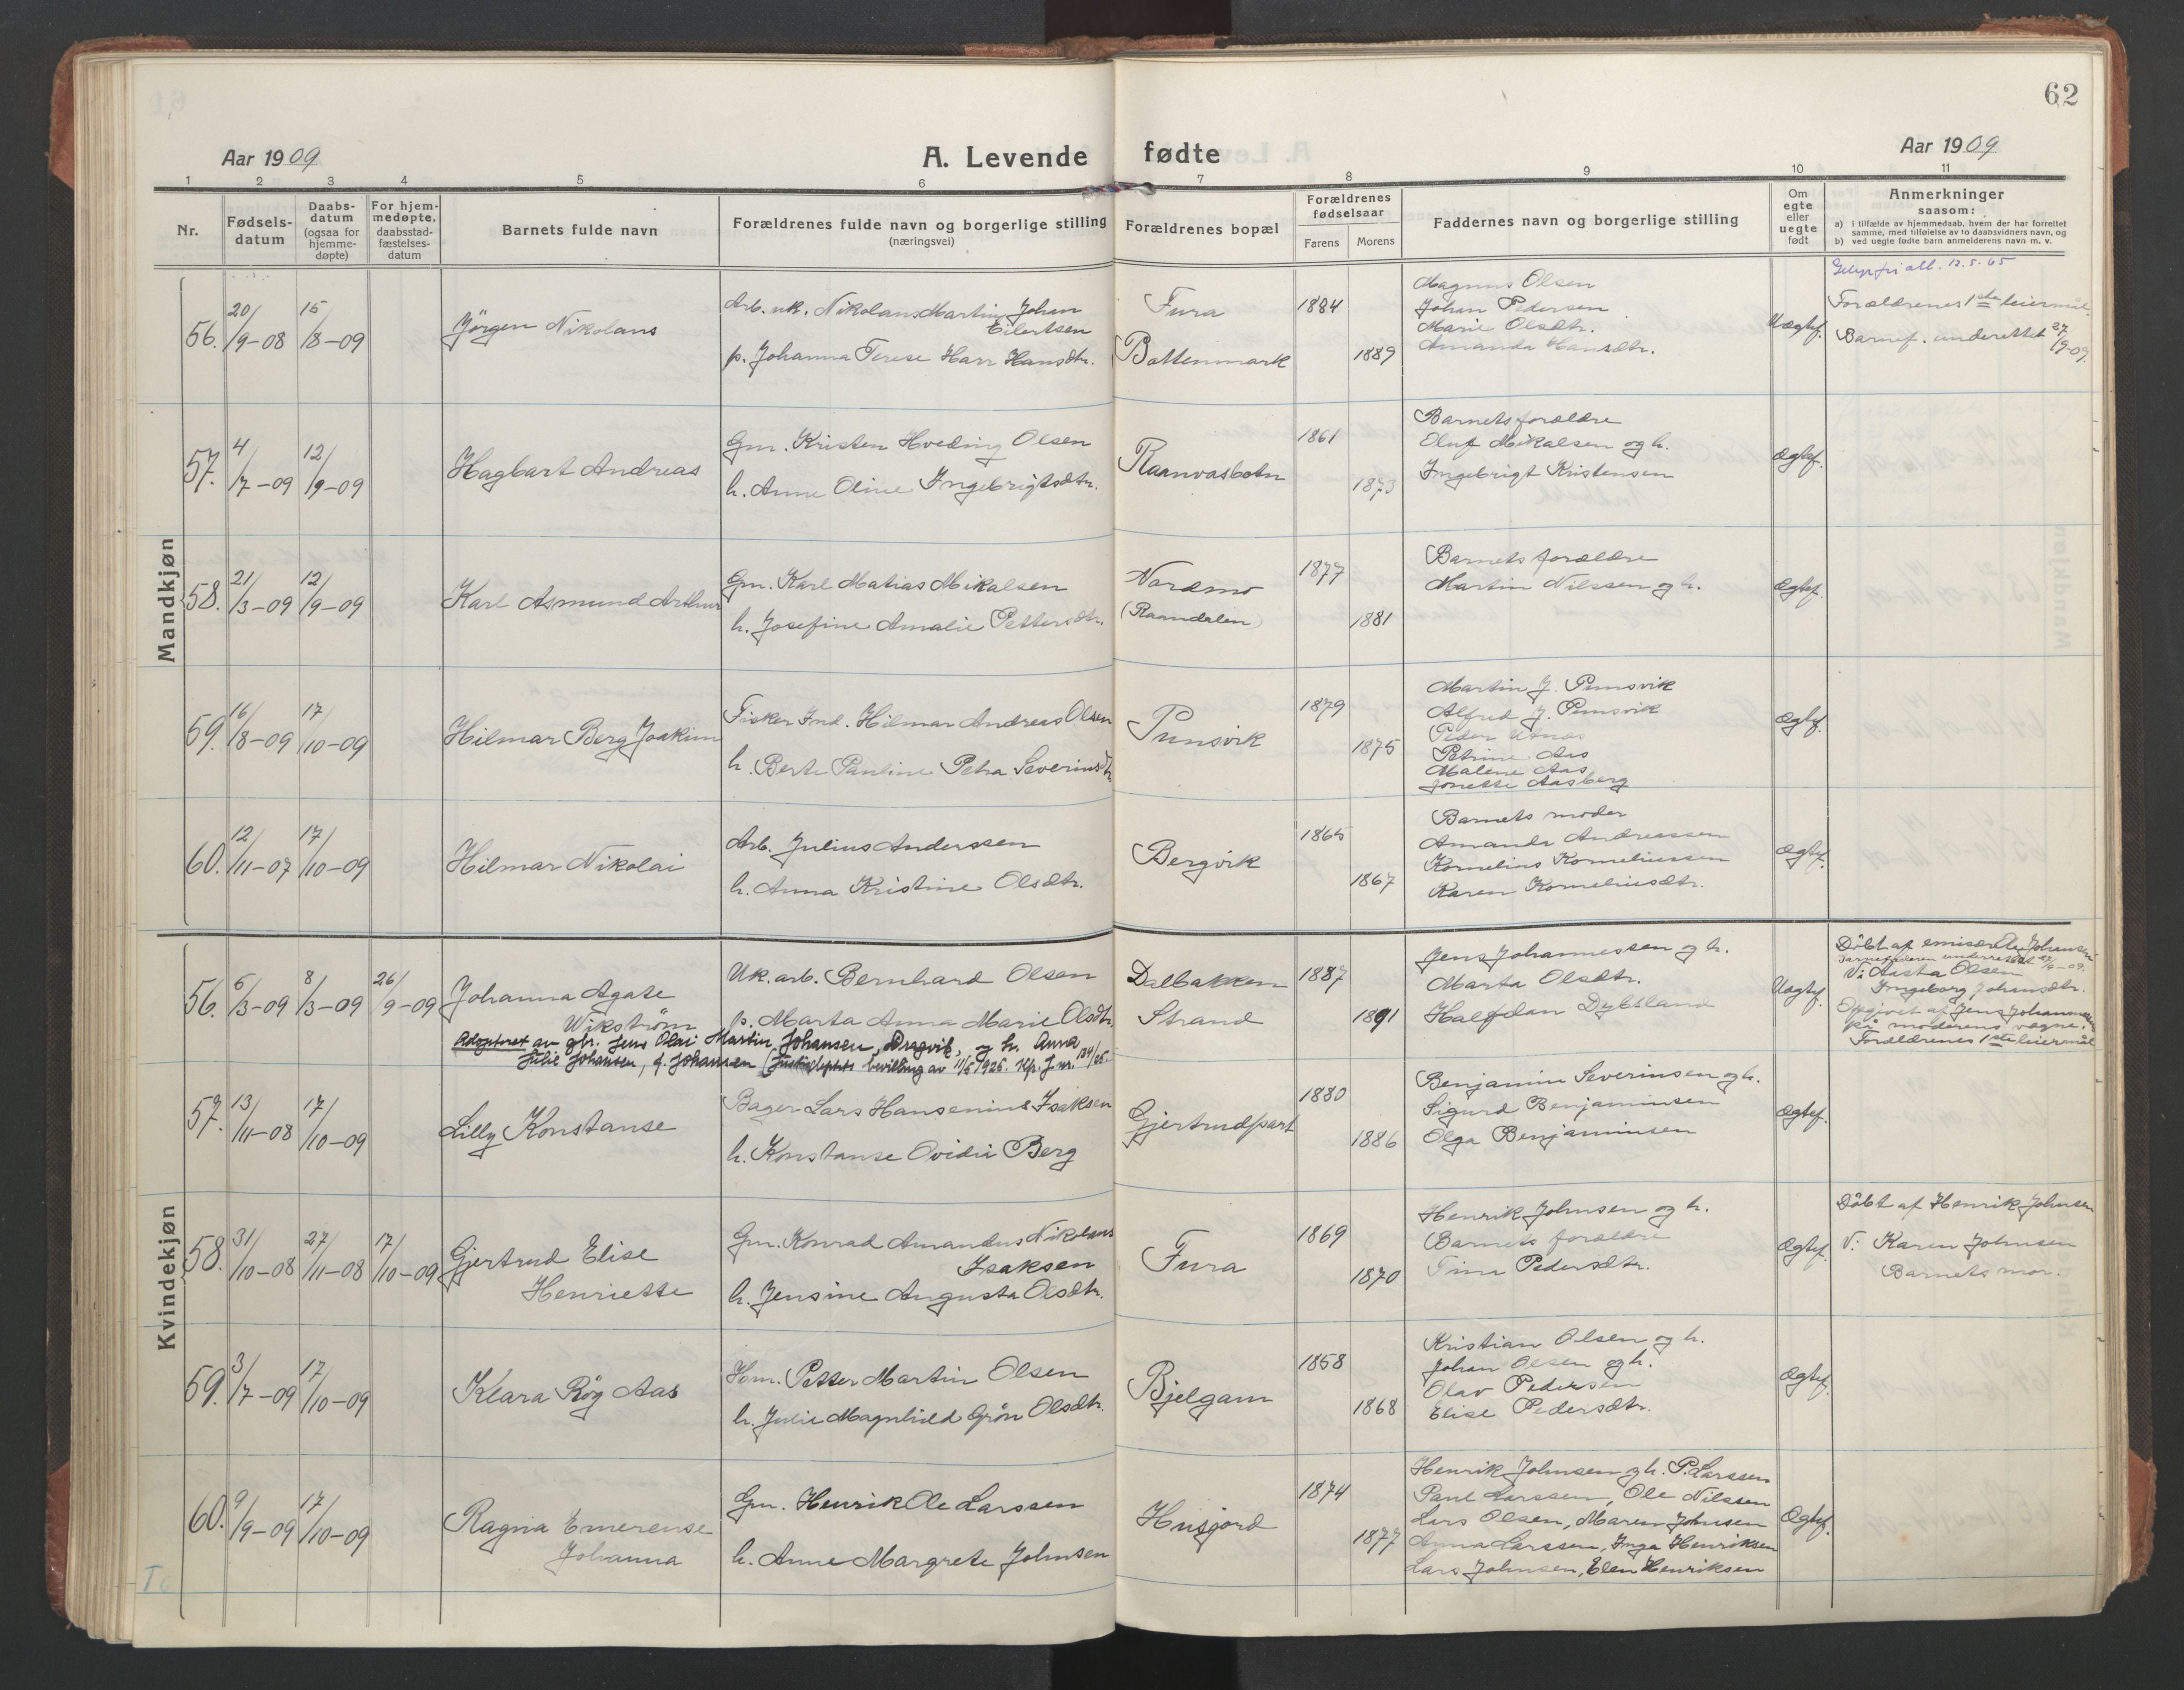 62
Aar 1909
A. Levende fødte
Aar 1909
1 2 3 4 5 6 7 8 9 10 11
Nr.
Fødsels-
datum
Daabs-
datum
(ogsaa for
hjemme-
døpte)
For hjem-
medøpte,
daabsstad-
fæstelses-
datum
Barnets fulde navn
Forældrenes fulde navn og borgerlige stilling
(næringsvei)
Forældrenes bopæl
Forældrenes
fødselsaar
Farens
Morens
Faddernes navn og borgerlige stilling
Om
egte
eller
uegte
født
Anmerkninger
saasom:
a) i tilfælde av hjemmedaab, hvem der har forrettet
samme, med tilføielse av to daabsvidners navn, og
b) ved uegte fødte barn anmelderens navn m. v.
Mandkjøn
56. 20/9-08 15/8-09
Jörgen Nikolaus
Arb. uk. Nikolaus Martin Johan
Eilertsen
p. Johanna Terese Harr Hansdtr.
Fura
Bottenmark
1884
1889
Magnus Olsen
Johan Pedersen
Marie Olsdtr.
Amanda Hansdtr.
Uægtef.
12.5.65
Forældrenes 1ste leiermål.
Barnef. underrettet 27/9-09.
57. 4/7-09 12/9-09
Hagbart Andreas
Gm. Kristen Hveding Olsen
h. Anne Oline Ingebrigtsdtr.
Raanvasbotn
1861
1873
Barnets forældre
Oluf Mikalsen og h.
Ingebrigt Kristensen
Ægtef.
58. 21/3-09 12/9-09
Karl Asmund Arthur
Gm. Karl Matias Mikalsen
h. Josefine Amalie Pettersdtr.
Nordmo
(Raandalen)
1877
1881
Barnets forældre
Martin Nilssen og h.
Ægtef.
59. 16/8-09 17/10-09
Hilmar Berg Joakim
Fisker Ind. Hilmar Andreas Olsen
h. Berte Pauline Petra Severinsdtr.
Punsvik
1879
1875
Martin J. Punsvik
Alfred J. Punsvik
Peder
Petrine Aas
Malene Aas
Jonette Aasberg
Ægtef.
60. 12/11-07 17/10-09
Hilmar Nikolai
Arb. Julius Anderssen
h. Anna Kristine Olsdtr.
Bergvik
1865
1867
Barnets moder
Amanda Andreassen
Kornelius Korneliussen
Karen Korneliusdtr.
Ægtef.
Kvindekjøn
56. 6/3-09 8/3-09 26/9-09
Johanna Agate
Wikstrøm
Uk. arb. Bernhard Olsen
p. Marta Anna Marie Olsdtr.
Dalbakken
Strand
1887
1891
Jens Johannessen og h.
Marta Olsdtr.
Halfdan Dybsland
Uægtef.
Döbt af emisær Ole Johansen
Barnefaderen underrettet 27/9-09.
V: Aasta Olsen
Ingeborg Johansdtr.
Opgivet af Jens Johannessen
på moderens vegne.
Forældrenes 1ste leiermål
Adoptert av gbr. Jens Olai Martin Johansen, Dragvik, og h. Anna
Julie Johansen, f. Johansen (Justisdeptets bevilling av 11/5 1926. Kp. J. nr. 134/26.
57. 13/11-08 17/10-09
Lilly Konstanse
Bager Lars Hansenius Isaksen
h. Konstanse Ovidii Berg
Gjertrudpart
1880
1886
Benjamin Severinsen og h.
Sigurd Benjaminsen
Olga Benjaminsen
Ægtef.
58. 31/10-08 27/11-08 17/10-09
Gjertrud Elise
Henriette
Gm. Konrad Amandus Nikolaus
Isaksen
h. Jensine Augusta Olsdtr.
Fura
1869
1870
Henrik Johnsen og h.
Barnets forældre
Tina Pedersdtr.
Ægtef.
Döbt af Henrik Johnsen
V: Karen Johnsen
Barnets mor.
59. 3/7-09 17/10-09
Klara Rög Aas
Hsm. Petter Martin Olsen
h. Julie Magnhild Grön Olsdtr.
Bjelgam
1858
1868
Kristian Olsen og h.
Johan Olsen og h.
Olav Pedersen
Elise Pedersdtr.
Ægtef.
60. 9/9-09 17/10-09
Ragna Emerense
Johanna
Gm. Henrik Ole Larssen
h. Anne Margrete Johnsen
Husjord
1874
1877
Henrik Johnsen og h. P. Larssen
Paul Larssen, Ole Nilssen
Lars Olsen, Maren Johnsen
Anna Larssen, Inga Henriksen
Lars Johnsen, Elen Henriksen
Ægtef.